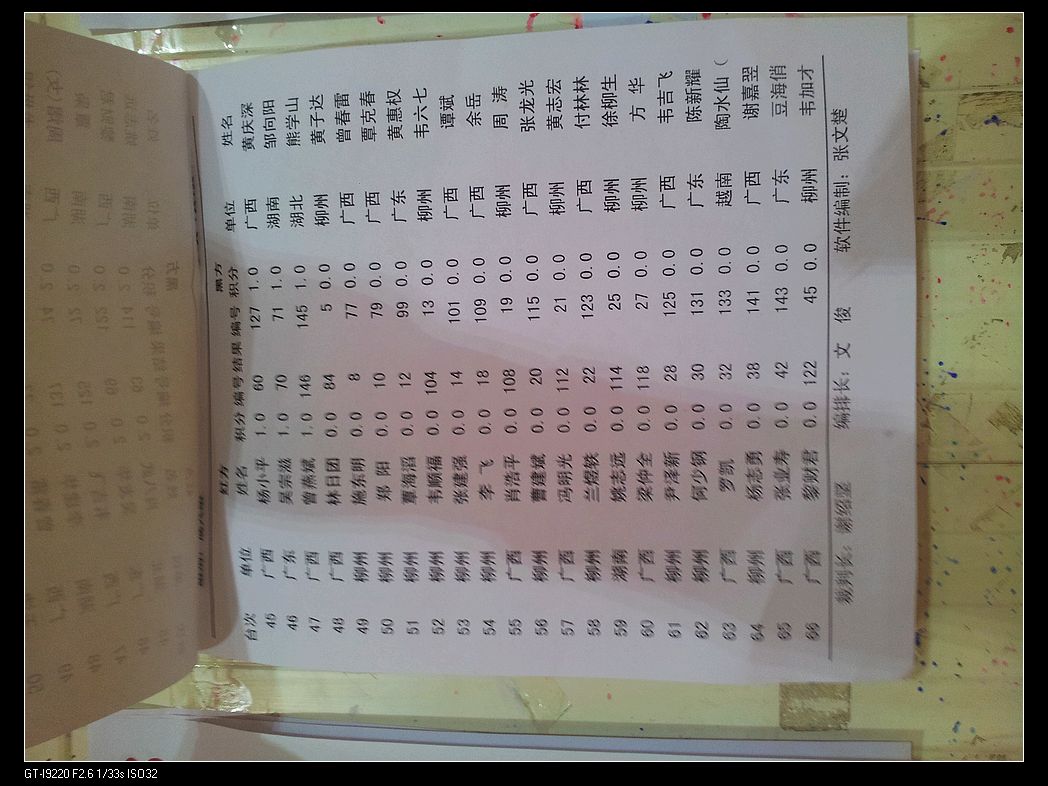 红方 黑方
台次 单位 姓名 积分 编号 结果 编号 积分 单位 姓名
45 广西 杨小平 1.0 60 127 1.0 广西 黄庆深
46 广东 吴宗滋 1.0 70 71 1.0 湖南 邹向阳
47 广西 曾燕斌 1.0 146 145 1.0 湖北 熊学山
48 广西 林日团 0.0 84 5 0.0 柳州 黄子达
49 柳州 施东明 0.0 8 77 0.0 广西 曾春雷
50 柳州 郑 阳 0.0 10 79 0.0 广西 覃克春
51 柳州 覃海滔 0.0 12 99 0.0 广东 黄惠权
52 柳州 韦顺福 0.0 104 13 0.0 柳州 韦六七
53 柳州 张建强 0.0 14 101 0.0 广西 谭斌
54 柳州 李 飞 0.0 18 109 0.0 广西 余岳
55 广西 肖浩平 0.0 108 19 0.0 柳州 周 涛
56 柳州 曹建斌 0.0 20 115 0.0 广西 张龙光
57 广西 冯明光 0.0 112 21 0.0 柳州 黄志宏
58 柳州 兰煜铁 0.0 22 123 0.0 广西 付林林
59 湖南 姚志远 0.0 114 25 0.0 柳州 徐柳生
60 广西 梁仲全 0.0 118 27 0.0 柳州 方 华
61 柳州 尹泽新 0.0 28 125 0.0 广西 韦吉飞
62 柳州 何少钢 0.0 30 131 0.0 广东 陈新耀
63 广西 罗凯 0.0 32 133 0.0 越南 陶水仙(
64 柳州 杨志勇 0.0 38 141 0.0 广西 谢嘉翌
65 广西 张业寿 0.0 42 143 0.0 广东 豆海俏
66 广西 黎财君 0.0 122 45 0.0 柳州 韦加才
裁判长：谢绍坚 编排长：文 俊 软件编制：张文楚
GT-I9220 F2.6 1/33s ISO32